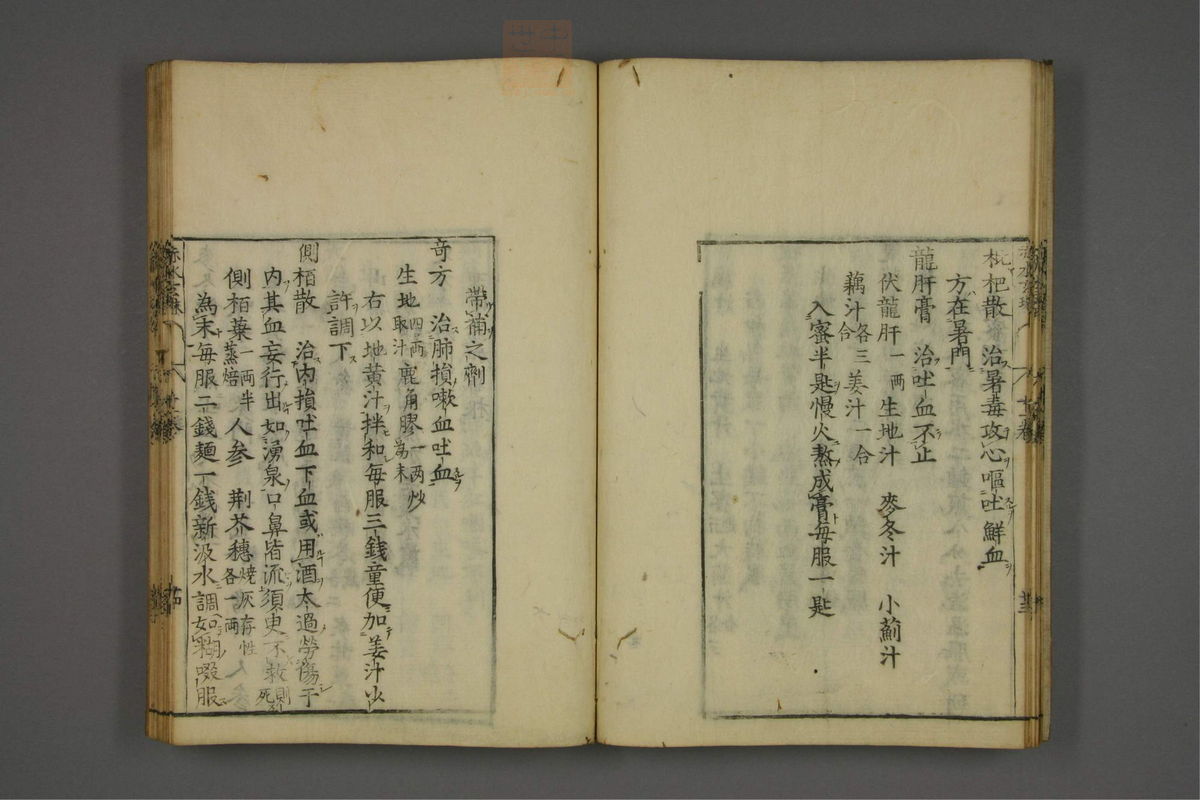 枇杷散　治暑毒攻心嘔吐鮮血
方在暑門
龍肝膏　治吐血不止
伏龍肝一両　生地汁　麥冬汁　小薊汁
藕汁各三合　姜汁一合
入蜜半匙慢火熬成膏毎服一匙
帶補之劑
竒方　治肺損嗽血吐血
生地四両取汁　鹿角膠一两炒為末
右以地黄汁拌和毎服三錢童便加姜汁少
許調下
側栢散　治内損吐血下血或用酒太過勞傷于
内其血妄行出如湧泉口鼻皆流須臾不救則死
側栢葉一両半蒸焙　人参　荆芥穗燒灰存性各一两
為末毎服二錢麺一錢新汲水調如糊啜服